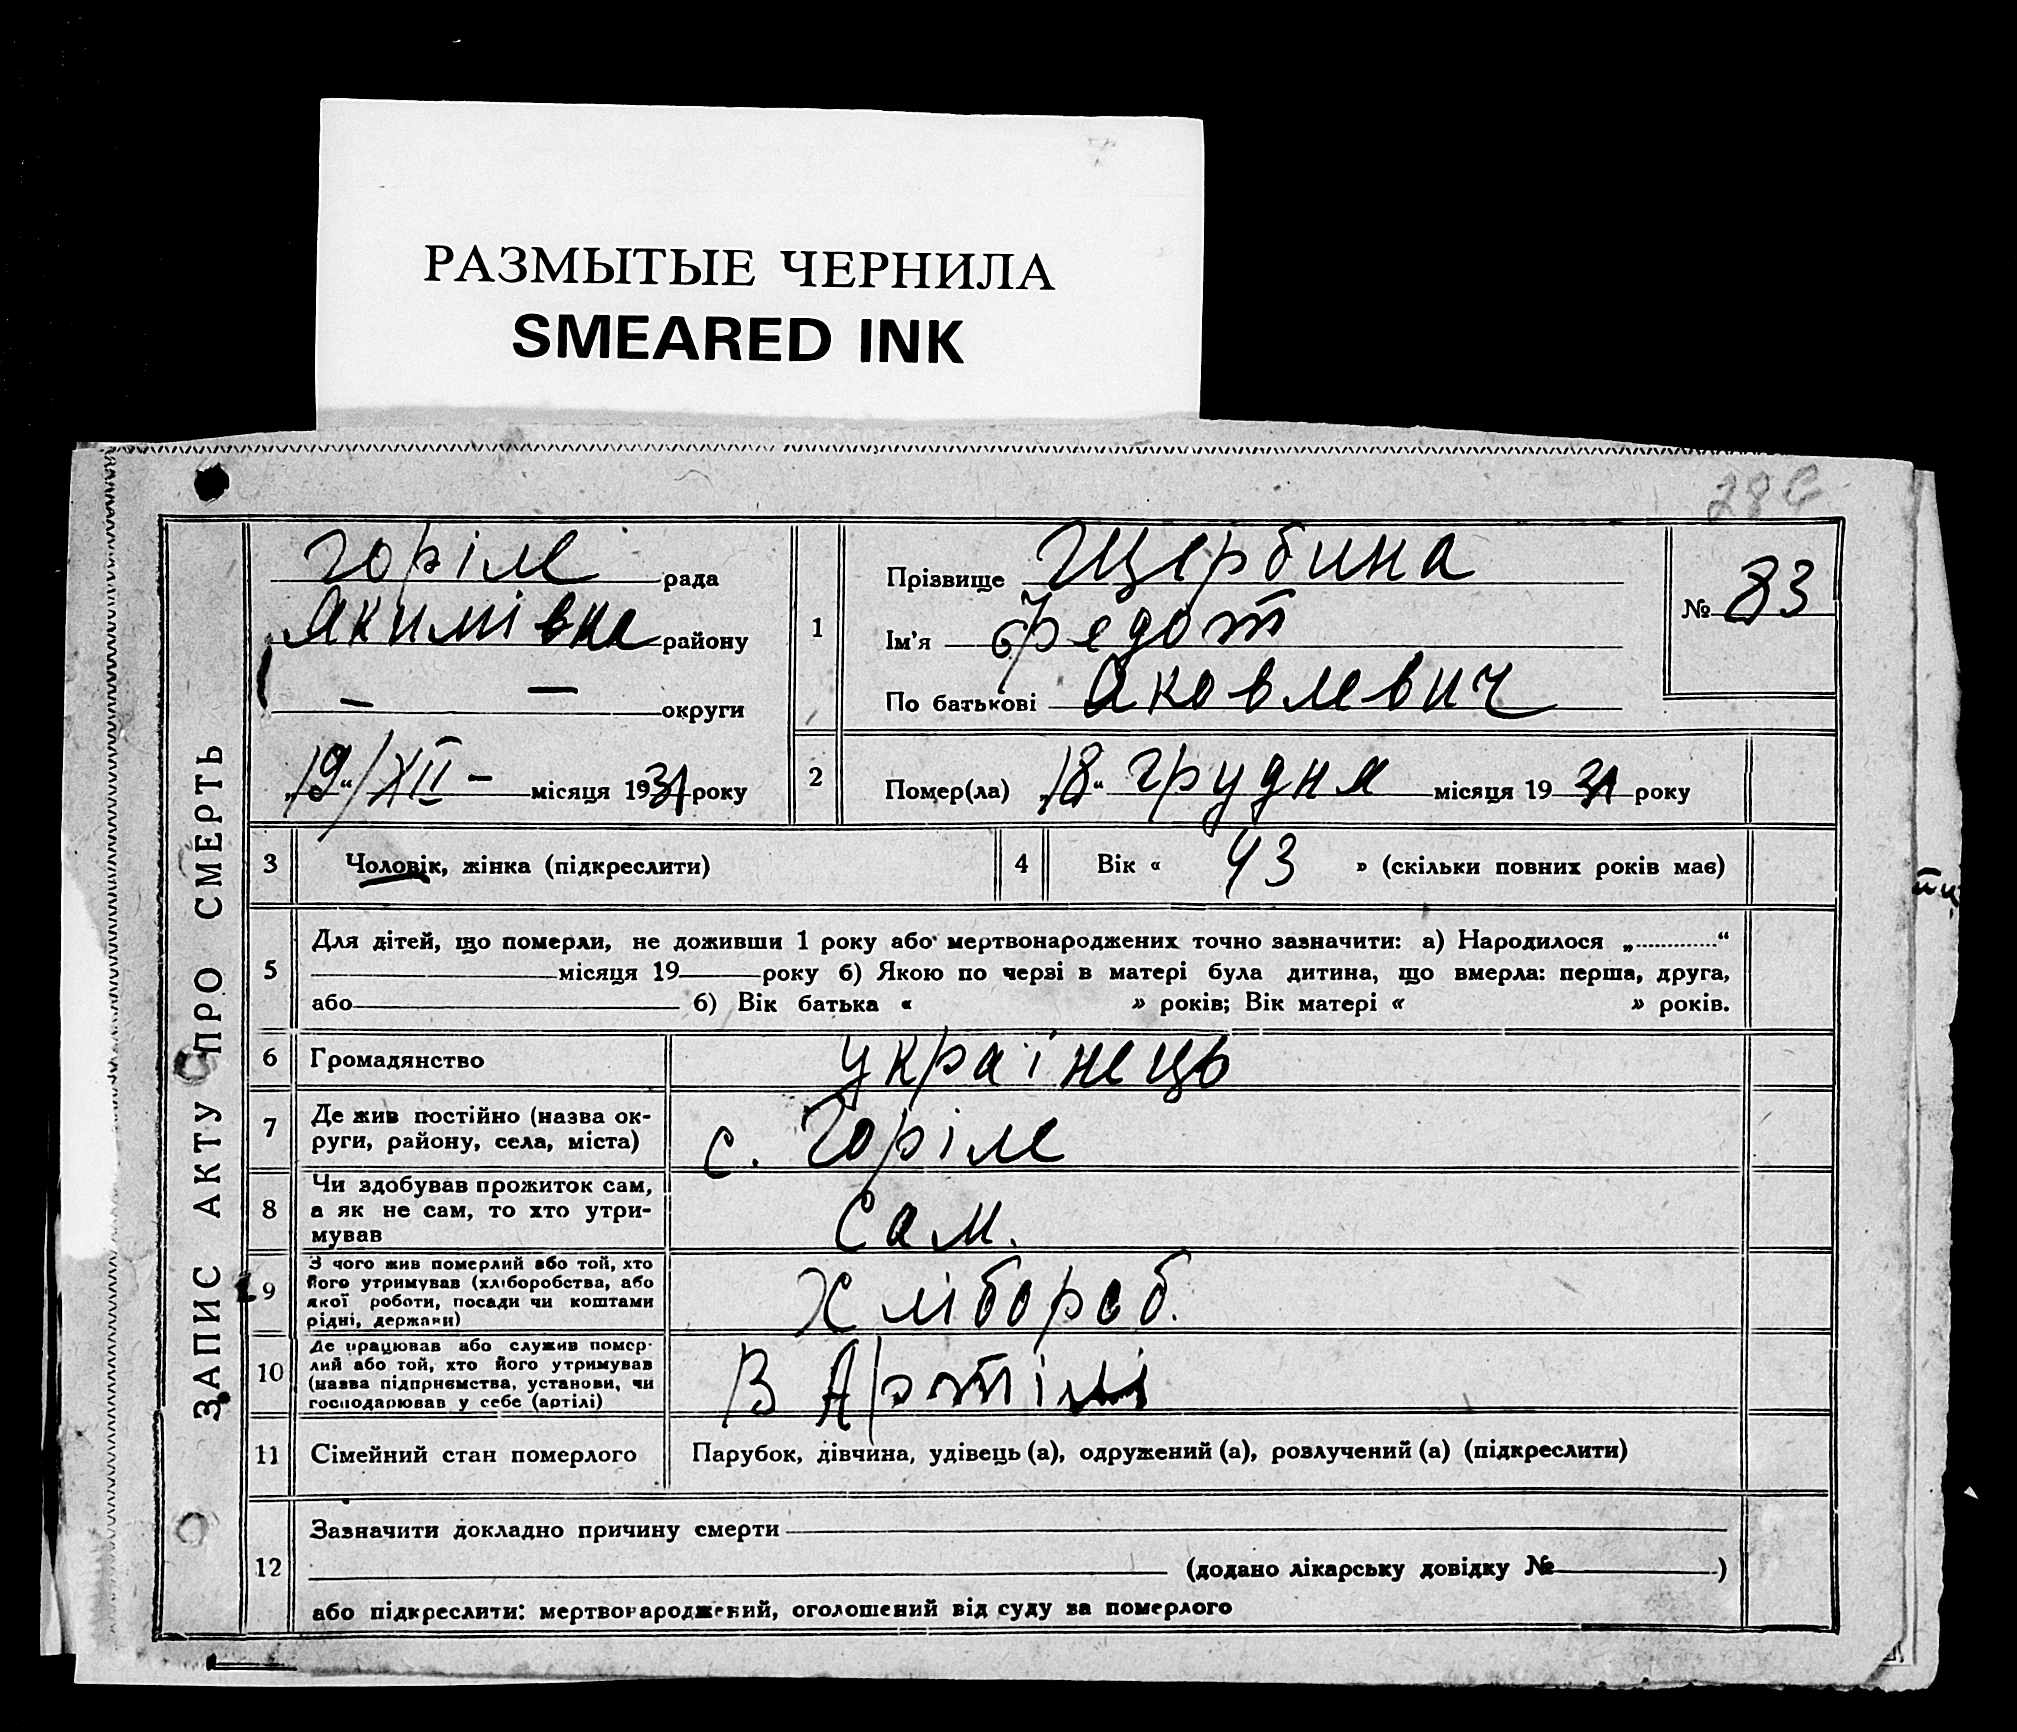 РАЗМЫТЫЕ ЧЕРНИЛА
SMEARED INK
ЗАПИС АКТУ ПРО СМЕРТЬ
Горіле рада
Якимівка району
— — округи
„19“/XII – місяця 1931 року
1
Прізвище Щербина
Ім'я Федот
По батькові Яковлевич
№ 83
2
Помер(ла) „18“ грудня місяця 1931 року
3 Чоловік, жінка (підкреслити)
4 Вік « 43 » (скільки повних років має)
5
Для дітей, що померли, не доживши 1 року або мертвонароджених точно зазначити: а) Народилося „............“
місяця 19 року б) Якою по черзі в матері була дитина, що вмерла: перша, друга,
або б) Вік батька « » років; Вік матері « » років.
6 Громадянство українець
7
Де жив постійно (назва ок-
руги, району, села, міста)
с. Горіле
8
Чи здобував прожиток сам,
а як не сам, то хто утри-
мував
Сам.
9
З чого жив померлий або той, хто
його утримував (хліборобства, або
якої роботи, посади чи коштами
рідні, держави)
Хлібороб.
10
Де працював або служив помер-
лий або той, хто його утримував
(назва підприємства, установи, чи
господарював у себе (артілі)
В Артілі
11 Сімейний стан померлого Парубок, дівчина, удівець (а), одружений (а), розлучений (а) (підкреслити)
12
Зазначити докладно причину смерти
(додано лікарську довідку № )
або підкреслити: мертвонароджений, оголошений від суду за померлого